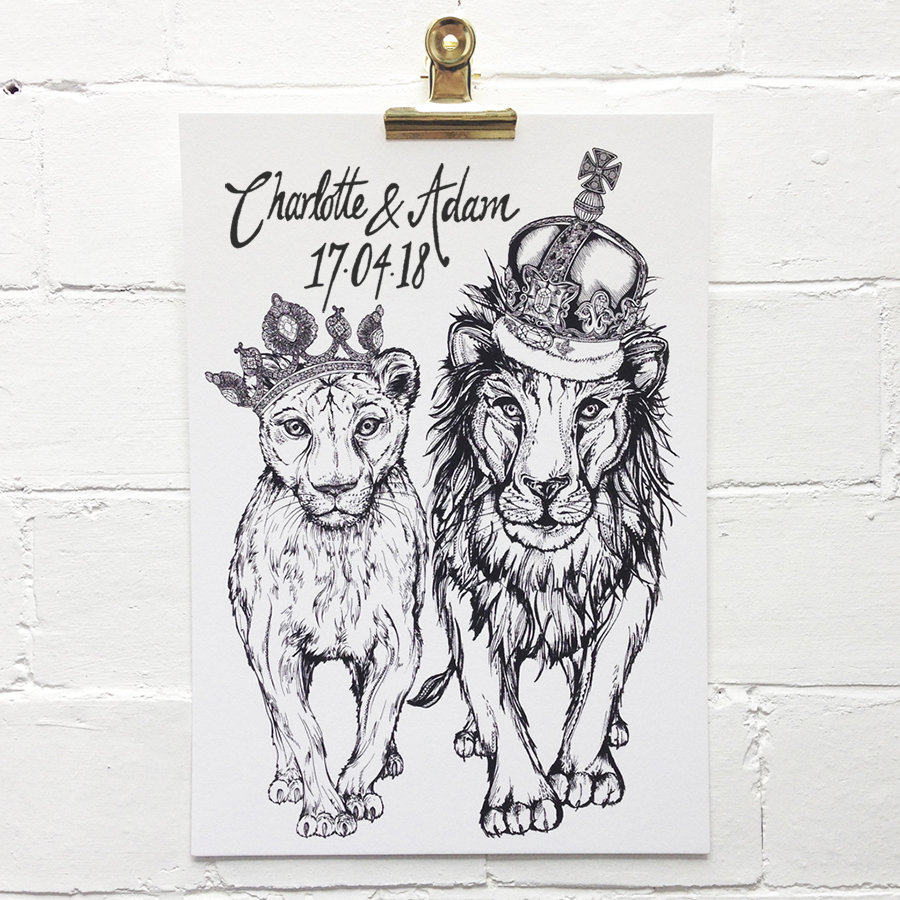 Charlotte & Adam
17.04.18